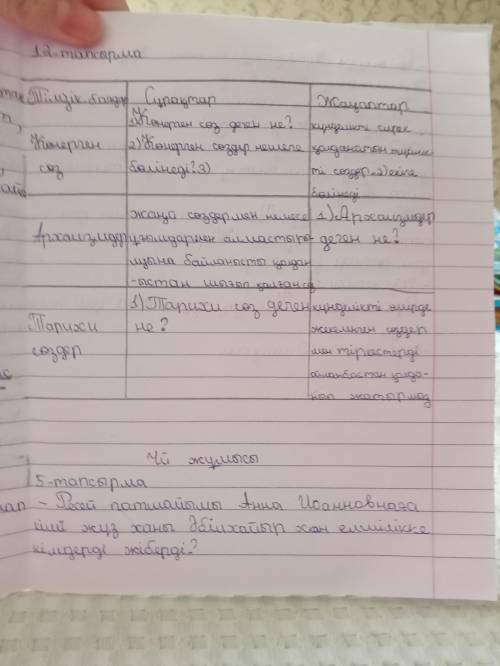 12-тапсырма
Тілдік бағдар Сұрақтар Жауаптар
Көнерген сөз
1) Көнерген сөз деген не?
2) Көнерген сөздер нешеге
бөлінеді? 3)
күнделікті сирек
қолданатын тіркес
ті сөздер. 2) екіге
бөлінеді
Архаизмдер
жаңа сөздермен немесе
ұғымдармен алмастыры-
луына байланысты қолдан
-ыстан шығып қалған сөз
1) Архаизмдер
деген не?
Тарихи
сөздер
1) Тарихи сөз деген
не?
күнделікті өмірде
сөздер
мен тіркестерді
қолда-
нып жатырмыз
Үй жұмысы
5-тапсырма
- Ресей патшайымы Анна Иоанновнаға
кіші жүз ханы Әбілхайыр хан елшілікке
кімдерді жіберді?